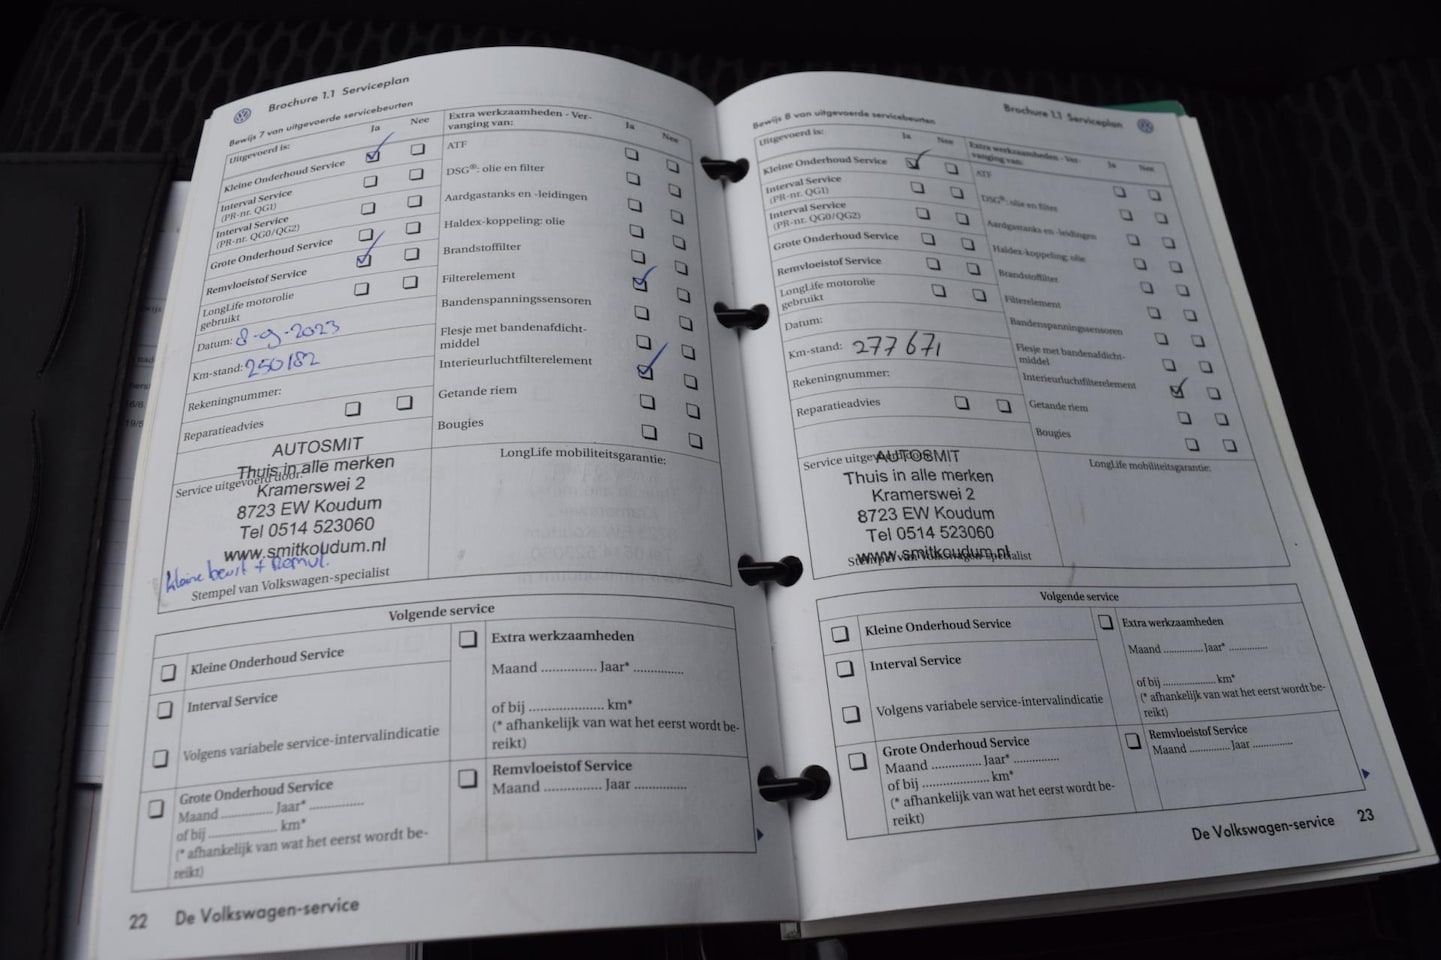 Brochure 1.1 Serviceplan
Bewijs 7 van uitgevoerde servicebeurten
Uitgevoerd is:
Ja
Nee
Kleine Onderhoud Service
Interval Service
(PR-nr. QG1)
Interval Service
(PR-nr. QG0/QG2)
Grote Onderhoud Service
Remvloeistof Service
LongLife motorolie
gebruikt
Datum: 8-9-2023
Km-stand: 250182
Rekeningnummer:
Reparatieadvies
Extra werkzaamheden - Ver-
vanging van:
Ja
Nee
ATF
DSG®: olie en filter
Aardgastanks en -leidingen
Haldex-koppeling: olie
Brandstoffilter
Filterelement
Bandenspanningssensoren
Flesje met bandenafdicht-
middel
Interieurluchtfilterelement
Getande riem
Bougies
AUTOSMIT
Thuis in alle merken
Service uitgevoerd door:
Kramerswei 2
8723 EW Koudum
Tel 0514 523060
www.smitkoudum.nl
kleine beurt + Remvl.
Stempel van Volkswagen-specialist
LongLife mobiliteitsgarantie:
Volgende service
Kleine Onderhoud Service
Interval Service
Volgens variabele service-intervalindicatie
Grote Onderhoud Service
Maand ............ Jaar* ............
of bij ............ km*
(* afhankelijk van wat het eerst wordt be-
reikt)
Extra werkzaamheden
Maand ............ Jaar* ............
of bij ............ km*
(* afhankelijk van wat het eerst wordt be-
reikt)
Remvloeistof Service
Maand ............ Jaar ............
22 De Volkswagen-service
Brochure 1.1 Serviceplan
Bewijs 8 van uitgevoerde servicebeurten
Uitgevoerd is:
Ja
Nee
Kleine Onderhoud Service
Interval Service
(PR-nr. QG1)
Interval Service
(PR-nr. QG0/QG2)
Grote Onderhoud Service
Remvloeistof Service
LongLife motorolie
gebruikt
Datum:
Km-stand: 277671
Rekeningnummer:
Reparatieadvies
Extra werkzaamheden - Ver-
vanging van:
Ja
Nee
ATF
DSG®: olie en filter
Aardgastanks en -leidingen
Haldex-koppeling: olie
Brandstoffilter
Filterelement
Bandenspanningssensoren
Flesje met bandenafdicht-
middel
Interieurluchtfilterelement
Getande riem
Bougies
Service uitgevoerd door:
AUTOSMIT
Thuis in alle merken
Kramerswei 2
8723 EW Koudum
Tel 0514 523060
www.smitkoudum.nl
Stempel van Volkswagen-specialist
LongLife mobiliteitsgarantie:
Volgende service
Kleine Onderhoud Service
Interval Service
Volgens variabele service-intervalindicatie
Grote Onderhoud Service
Maand ............ Jaar* ............
of bij ............ km*
(* afhankelijk van wat het eerst wordt be-
reikt)
Extra werkzaamheden
Maand ............ Jaar* ............
of bij ............ km*
(* afhankelijk van wat het eerst wordt be-
reikt)
Remvloeistof Service
Maand ............ Jaar ............
De Volkswagen-service 23